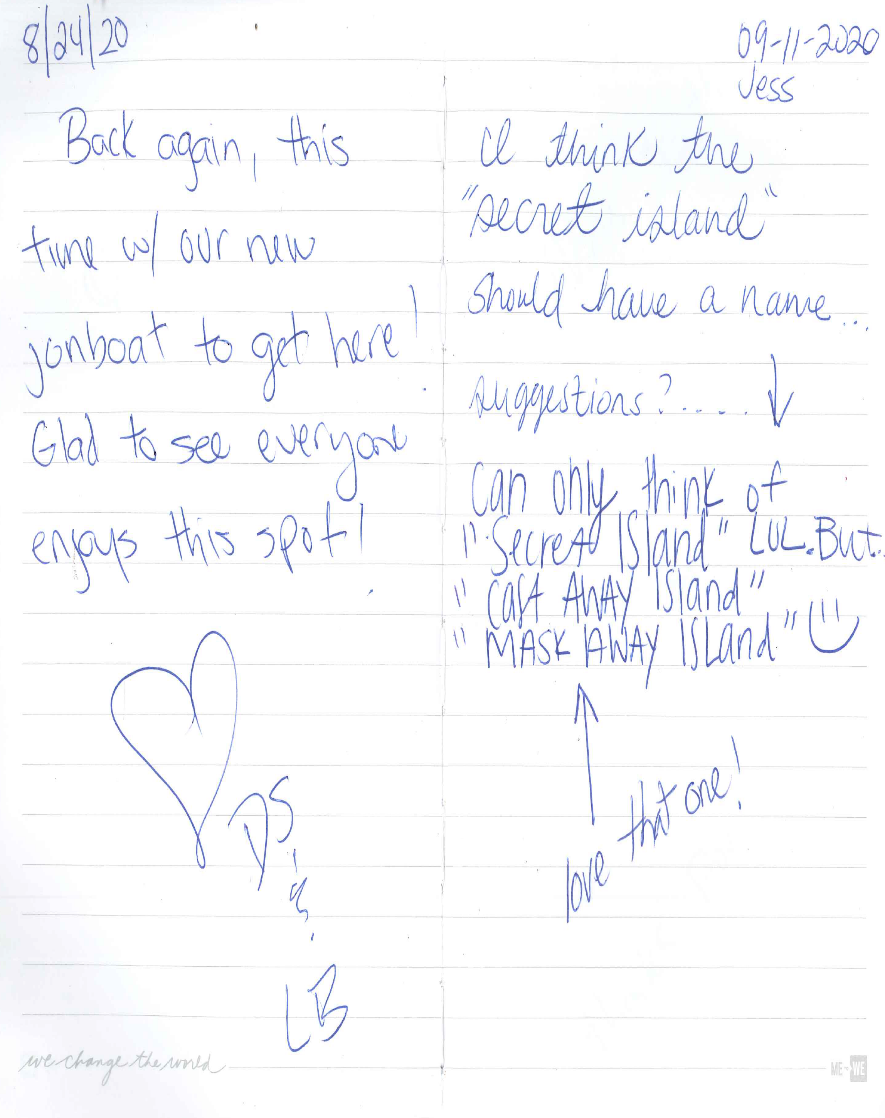 8/24/20
Back again, this
time w/ our new
jonboat to get here!
Glad to see everyone
enjoys this spot!
DS
&
LB
we change the world
09-11-2020
Jess
I think the
"secret island"
should have a name...
suggestions?.....
Can only think of
"Secret Island" LOL. But..
"Cast Away Island"
"MASK AWAY ISLand"
love that one!
ME to WE